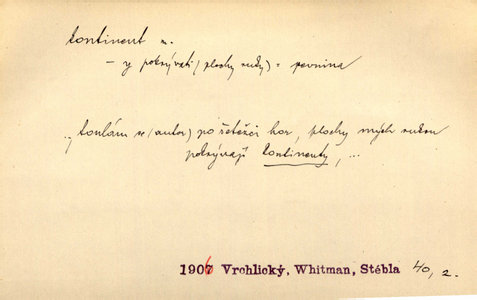 kontinent m.
– y pokrývati (plochy ruky) = pevnina
„toulám se (autor) po řetězci hor, plochy mých rukou
pokrývají kontinenty, ...
1906 Vrchlický, Whitman, Stébla 40, 2.